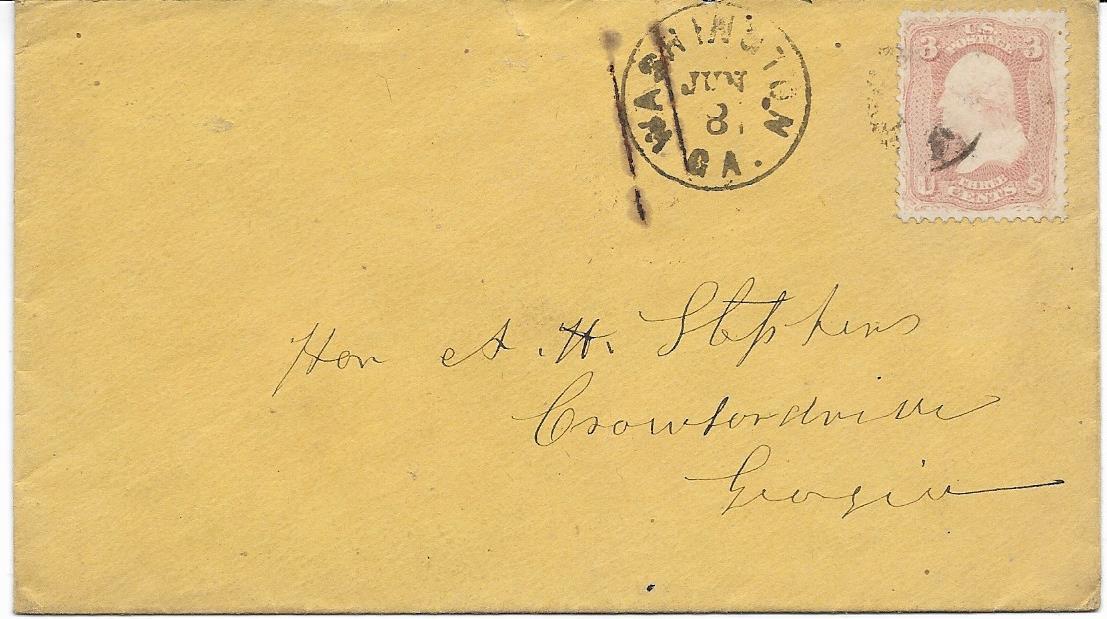 WASHINGTON
JUN
8
GA.
3 U.S. 3
POSTAGE
U THREE S
CENTS
Hon A. H. Stephens
Crowfordville
Georgia